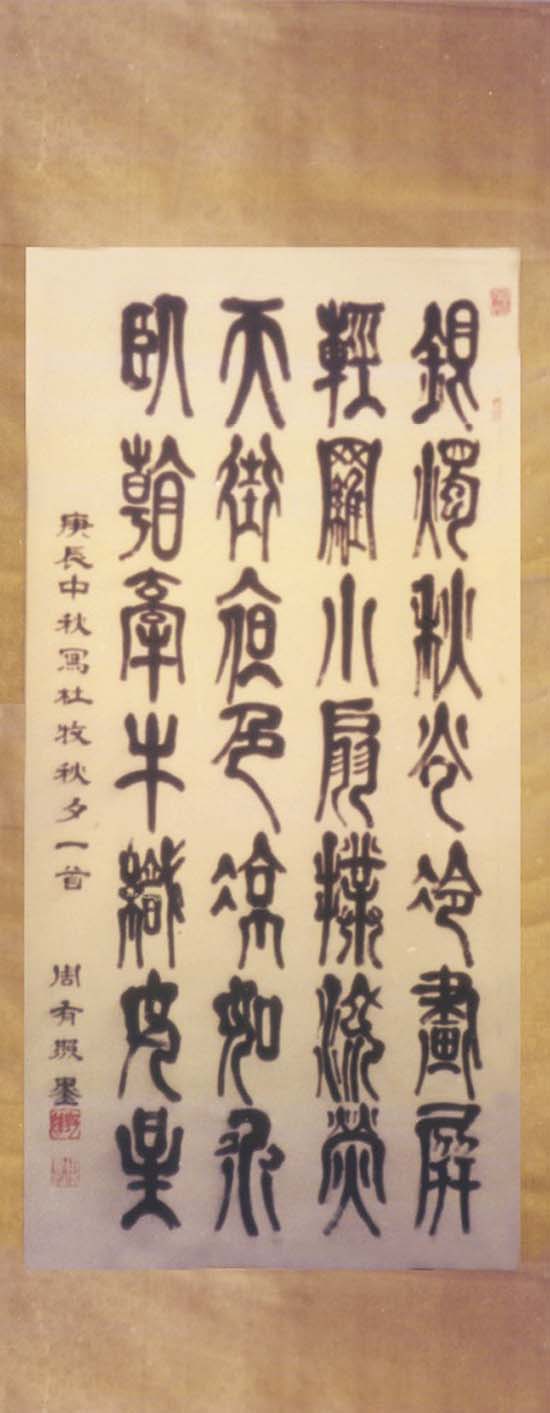 銀燭秋光冷畫屏
輕羅小扇撲流螢
天街夜色涼如水
臥看牽牛織女星
庚辰中秋寫杜牧秋夕一首
周有 墨